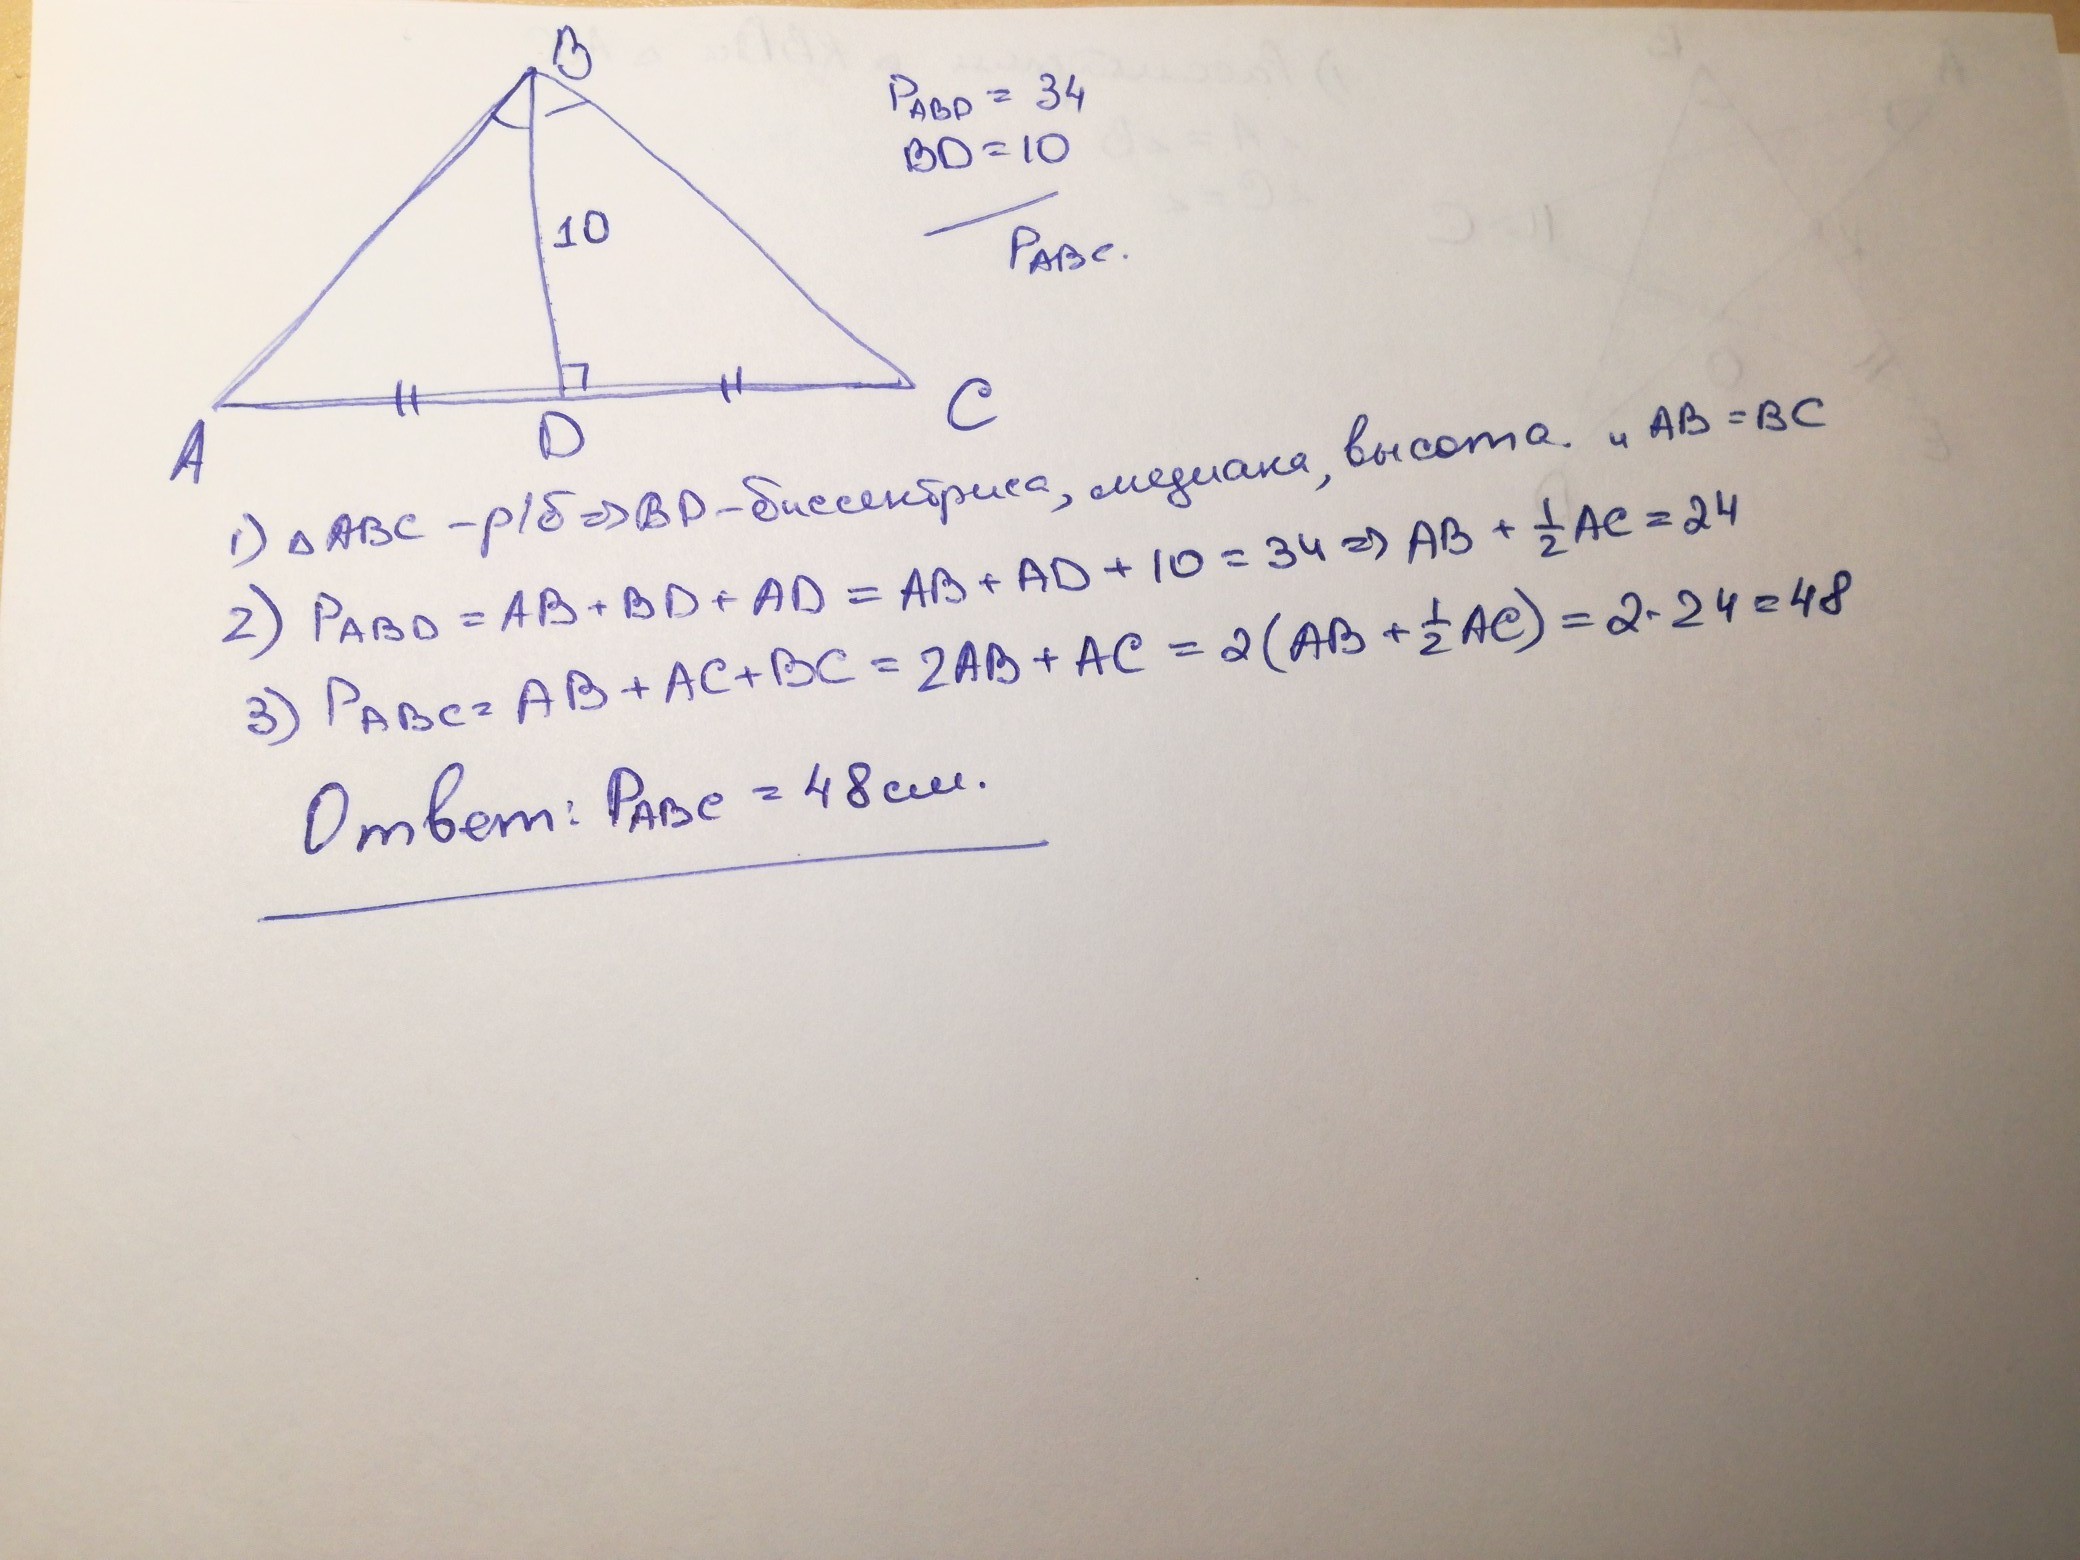 B
P_ABD = 34
BD = 10
P_ABC.
10
A
D
C
1) △ABC - р/б => BD - биссектриса, медиана, высота. и AB = BC
2) P_ABD = AB + BD + AD = AB + AD + 10 = 34 => AB + 1/2 AC = 24
3) P_ABC = AB + AC + BC = 2AB + AC = 2(AB + 1/2 AC) = 2·24 = 48
Ответ: P_ABC = 48 см.